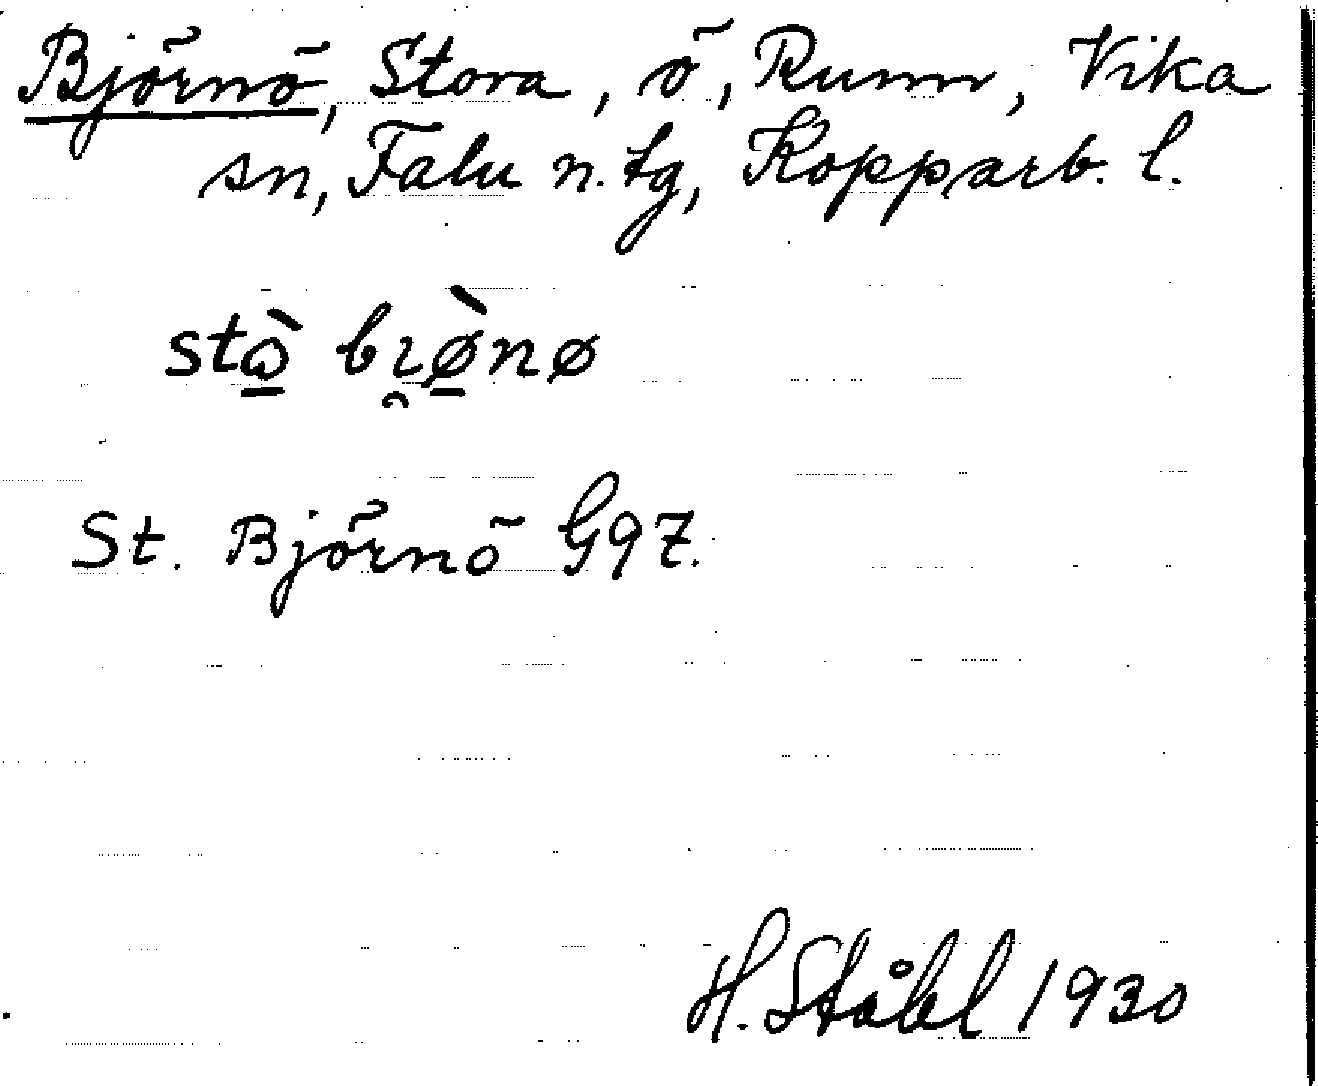 Björnö, Stora, ö, Runn, Vika
sn, Falu n. tg, Kopparb. l.
stɷ̠̀ bɿ̯ø̠̀nø
St. Björnö G97.
H. Ståhl 1930